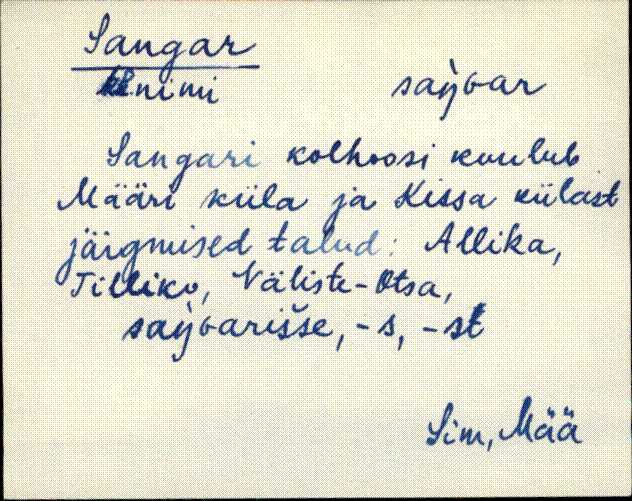 Sangar
kl. nimi saŋ̀ɢar
Sangari kolhoosi kuulub
Määri küla ja Kissa külast
järgmised talud: Allika,
Tilliko, Väliste-Otsa,
saŋ̀ɢarišse, -s, -st
Sim, Mää